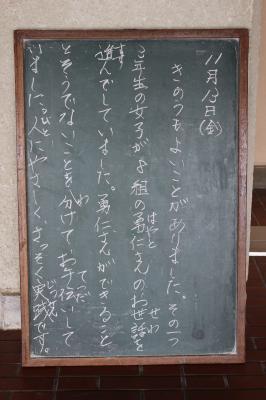 11月13日(金)
きのうもよいことがありました。その一つ
三年生の女子がよ組の勇仁さんのお世話を
進んでしていました。勇仁さんができること
とそうでないことを分けて、お手伝いして
いました。人にやさしく、さっそく実践です。